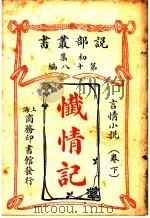 説部叢書
初集
第十八編
言情小説
(卷下)
懺情記
上海
商務印書館發行